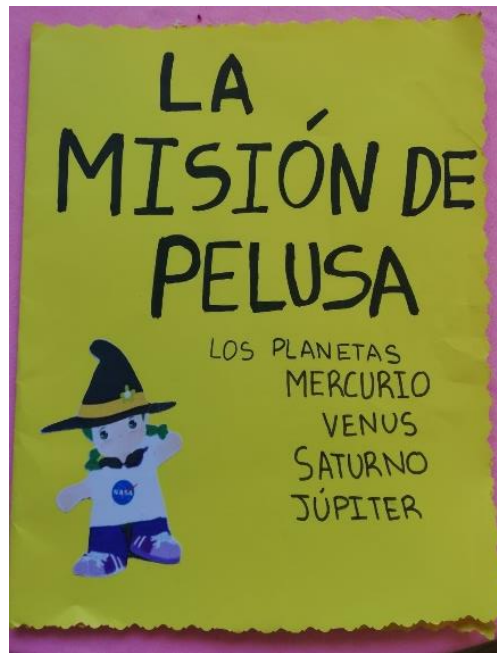 LA
MISIÓN DE
PELUSA
LOS PLANETAS
MERCURIO
VENUS
SATURNO
JÚPITER
NASA